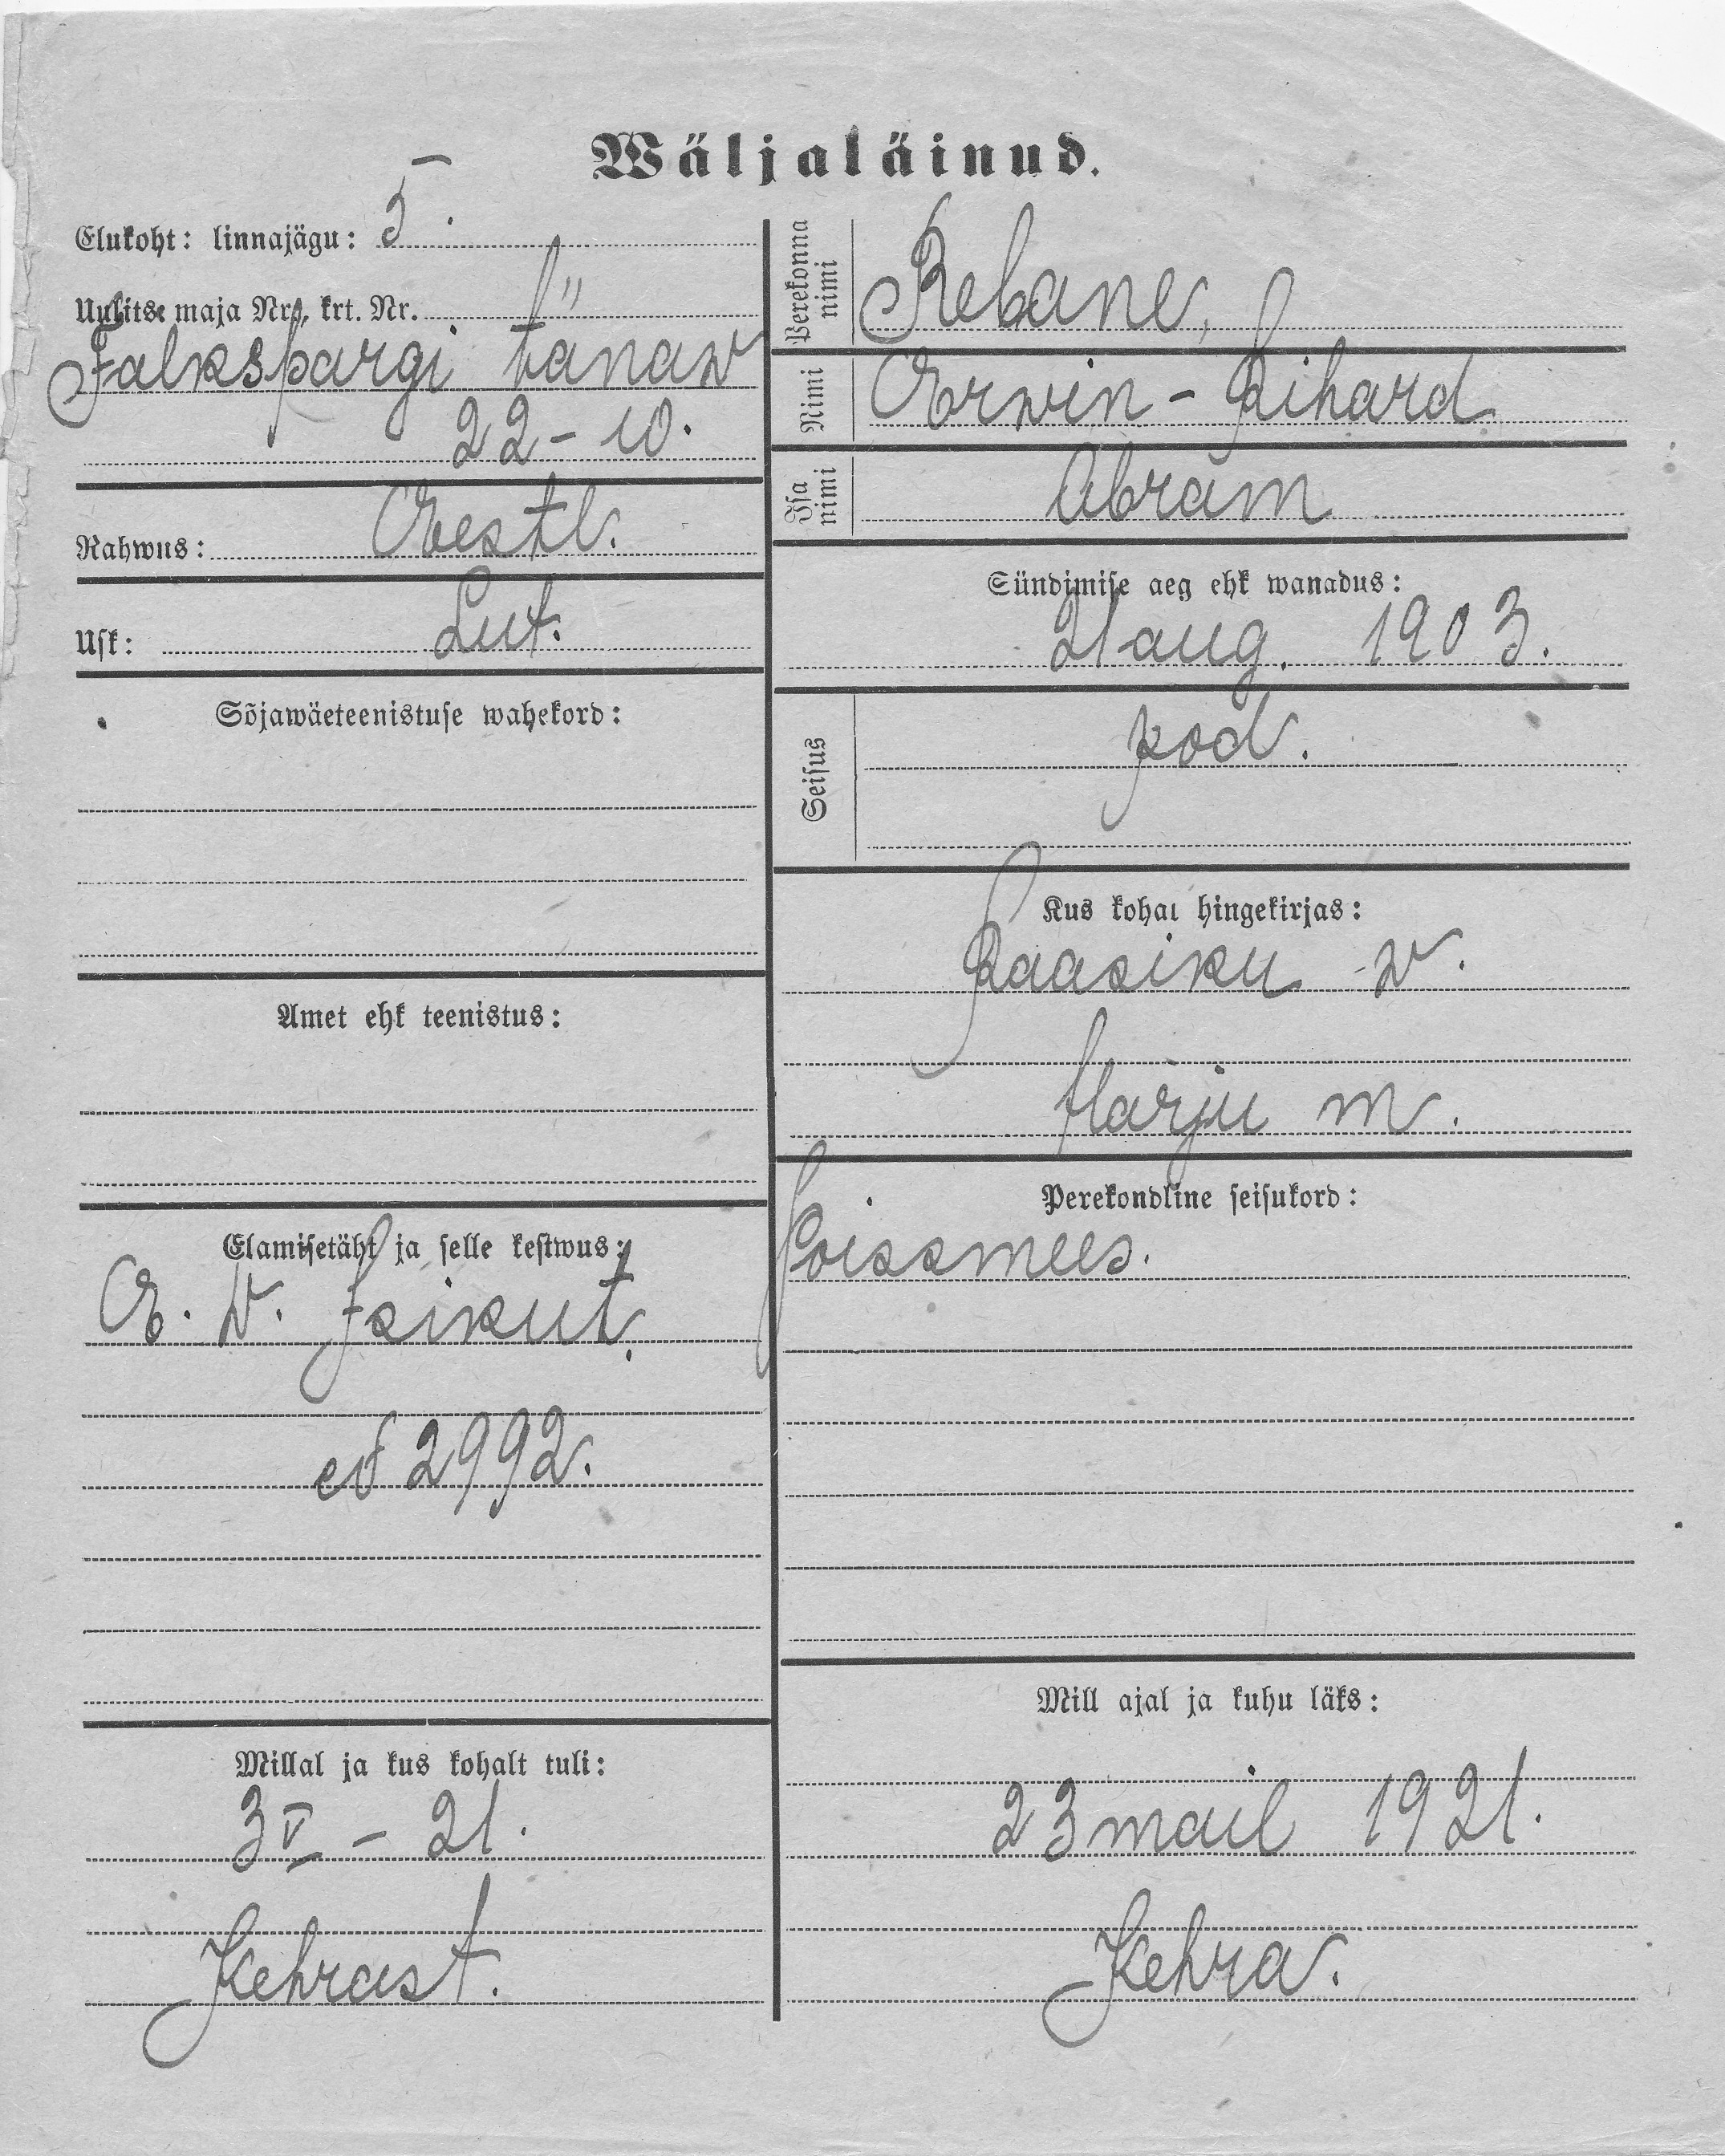 Wäljaläinud.
Elukoht: linnajägu: 5.
Uulitse maja Nr., krt. Nr.
Falkspargi tänaw
22-10.
Rahwus: Eestl.
Usk: Lut.
Sõjawäeteenistuse wahekord:
Amet ehk teenistus:
Elamisetäht ja selle kestwus:
E. W. Isikut.
2992.
Millal ja kus kohalt tuli:
3 V - 21.
Kehrast.
Perekonna nimi
Rebane,
Nimi
Erwin - Rihard
Isa nimi
Abram
Sündimise aeg ehk wanadus:
21 aug. 1903.
Seisus
pod.
Kus kohal hingekirjas:
Raasiku w.
Harju m.
Perekondline seisukord:
Poissmees.
Mill ajal ja kuhu läks:
23 mail 1921.
Kehra.